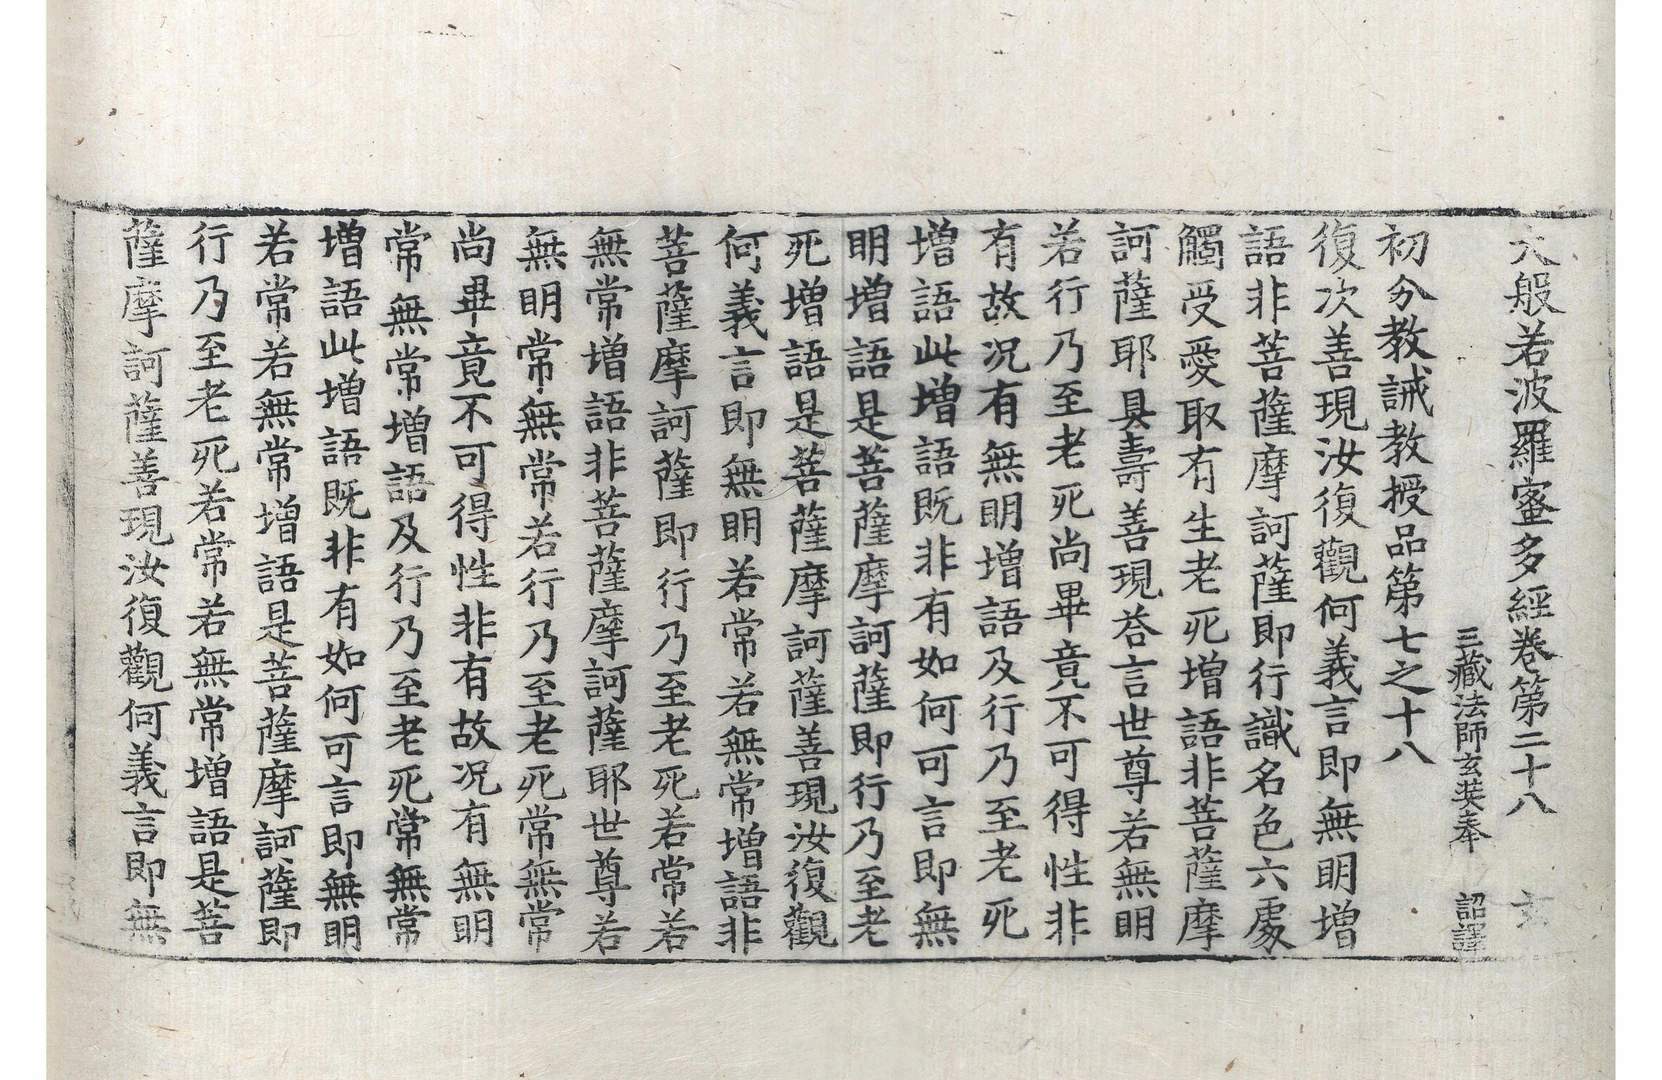 大般若波羅蜜多經卷第二十八 玄
三藏法師玄奘奉 詔譯
初分教誡教授品第七之十八
復次善現汝復觀何義言即無明增
語非菩薩摩訶薩即行識名色六處
觸受愛取有生老死增語非菩薩摩
訶薩耶具壽善現荅言世尊若無明
若行乃至老死尚畢竟不可得性非
有故況有無明增語及行乃至老死
增語此增語既非有如何可言即無
明增語是菩薩摩訶薩即行乃至老
死增語是菩薩摩訶薩善現汝復觀
何義言即無明若常若無常增語非
菩薩摩訶薩即行乃至老死若常若
無常增語非菩薩摩訶薩耶世尊若
無明常無常若行乃至老死常無常
尚畢竟不可得性非有故況有無明
常無常增語及行乃至老死常無常
增語此增語既非有如何可言即無明
若常若無常增語是菩薩摩訶薩即
行乃至老死若常若無常增語是菩
薩摩訶薩善現汝復觀何義言即無